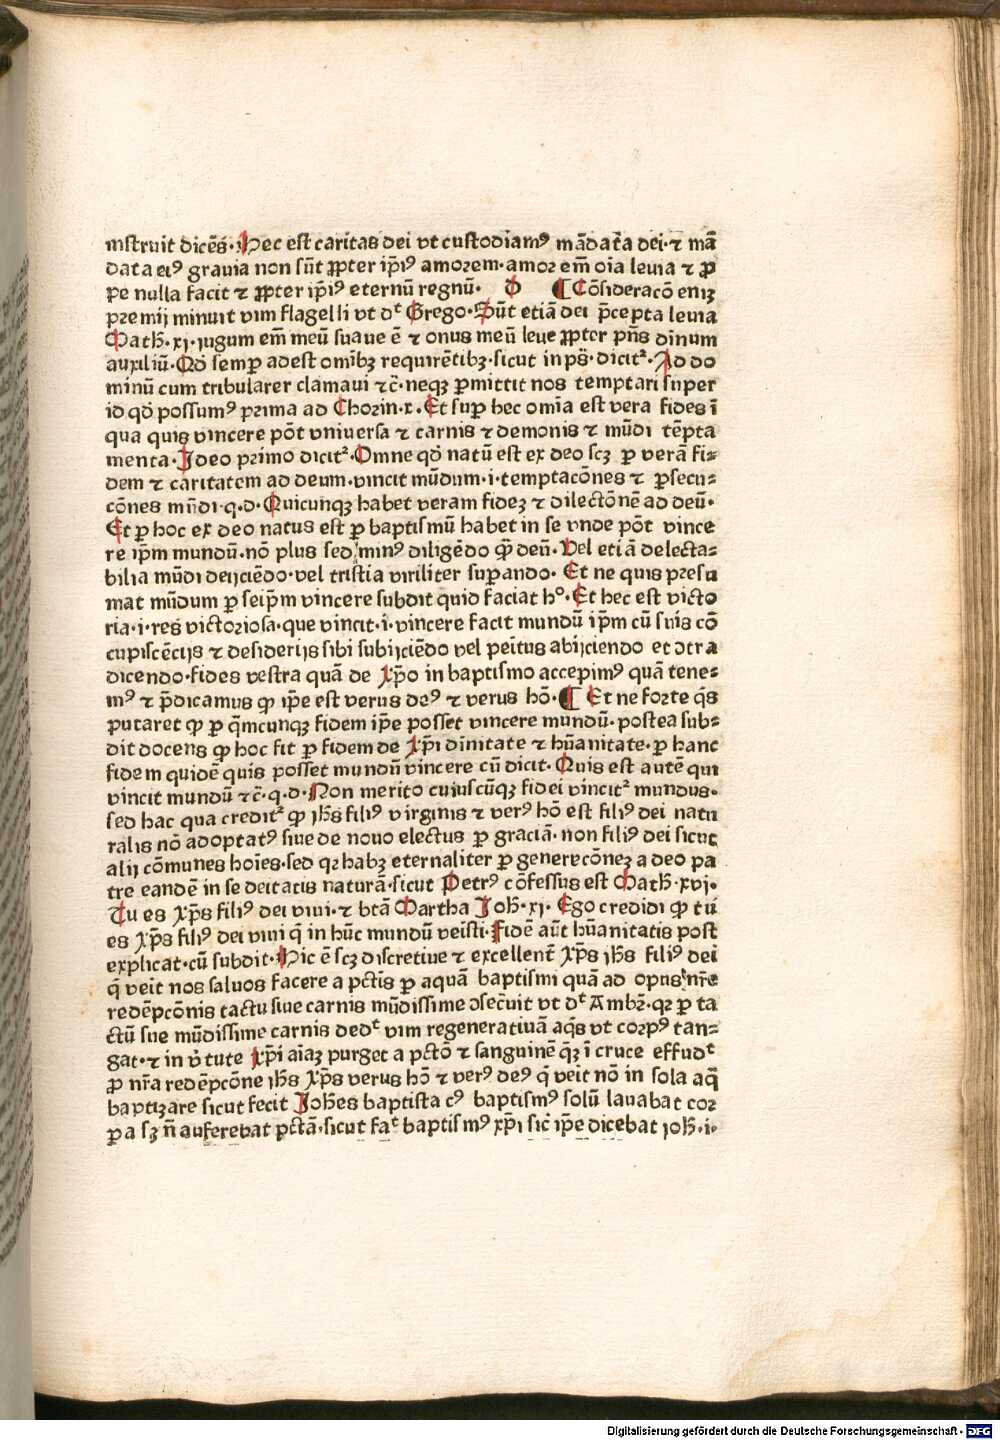 instruit dicēs·Hec est caritas dei vt custodiamꝰ mādata dei·⁊ mā
data eiꝰ grauia non sūt ꝓpter ipīꝰ amorem·amor em̄ oīa leuia ⁊ ꝓ
pe nulla facit ⁊ ꝓpter ipīꝰ eternū regnū· D ¶ Cōsideracō enīꝫ
premij minuit vim flagelli vt dᵗ Grego·Sūt etiā dei p̄cepta leuia
Math̄·xj·iugum em̄ meū suaue ē ⁊ onus meū leue ꝓpter pn̄s diuinum
auxiliū·Qd̄ semꝑ adest omībꝫ requirētibꝫ·sicut in ps̄·dicit²·Ad do
minū cum tribularer clamaui ⁊c̄·neqꝫ ꝑmittit nos temptari super
id qd̄ possumꝰ prima ad Chorin·x·Et suꝑ hec omīa est vera fides ī
qua quis vincere pōt vniuersa ⁊ carnis ⁊ demonis ⁊ mūdi tēpta
menta·Ideo primo dicit²·Omne qd̄ natū est ex deo scꝫ ꝑ verā fi⸗
dem ⁊ caritatem ad deum·vincit mūdum·i·temptacōnes ⁊ ꝑsecu⸗
cōnes mūdi·q·d·Quicunqꝫ habet veram fideꝫ ⁊ dilectōnē ad deū·
Et ꝑ hoc ex deo natus est ꝑ baptismū habet in se vnde pōt vince
re ip̄m mundū·nō plus sed minꝰ diligēdo qꝫ̄ deū·Vel etiā delecta⸗
bilia mūdi deijciēdo·vel tristia viriliter suꝑando· Et ne quis presu
mat mūdum ꝑ seip̄m vincere subdit quid faciat hᵒ·Et hec est victo
ria·i·res victoriosa·que vincit·i·vincere facit mundū ip̄m cū suis cō
cupiscēcijs ⁊ desiderijs sibi subijciēdo vel penitus abijciendo et ↄtra
dicendo·fides vestra quā de xp̄o in baptismo accepimꝰ quā tene⸗
mꝰ ⁊ p̄dicamus ꝙ ip̄e est verus deꝰ ⁊ verus hō·¶ Et ne forte q̄s
putaret ꝙ ꝑ q̄mcunqꝫ fidem ip̄e posset vincere mundū·postea sub⸗
dit docens ꝙ hoc fit ꝑ fidem de xp̄i dīnitate ⁊ hūanitate·ꝑ hanc
fidem quidē quis posset mundū vincere cū dicit·Quis est autē qui
vincit mundū ⁊c̄·q·d·Non merito cuiuscūqꝫ fidei vincit² mundus·
sed hac qua credit² ꝙ jh̄s filiꝰ virginis ⁊ verꝰ hō est filiꝰ dei natu
ralis nō adoptatꝰ siue de nouo electus ꝑ graciā·non filiꝰ dei sicut
alij cōmunes hoīes·sed qꝛ habꝫ eternaliter ꝑ generecōneꝫ a deo pa
tre eandē in se deitatis naturā·sicut Petrꝰ cōfessus est Math̄·xvj·
Tu es xp̄s filiꝰ dei viui·⁊ btā Martha Joh̄·xj· Ego credidi ꝙ tu
es xp̄s filiꝰ dei viui q̄ in hūc mundū veīsti·Fidē aūt hūanitatis post
explicat·cū subdit·Hic ē scꝫ discretiue ⁊ excellent̄ xp̄s jh̄s filiꝰ dei
q̄ veīt nos saluos facere a pctīs ꝑ aquā baptismi quā ad opus nr̄e
redēpcōnis tactu siue carnis mūdissime ↄsec̄uit vt dᵗ Ambꝛ·qꝛ ꝑ ta
ctū sue mūdissime carnis dedᵗ vim regeneratiuā aq̄s vt corpꝰ tan⸗
gat·⁊ in v̄tute xp̄i aīaꝫ purget a pctō ⁊ sanguinē qꝫ̄ ī cruce effudᵗ
ꝓ nr̄a redēpcōne jh̄s xp̄s verus hō ⁊ verꝰ deꝰ q̄ veīt nō in sola aq̄
baptizare sicut fecit Joh̄es baptista cꝰ baptismꝰ solū lauabat cor
ꝑa sꝫ n̄ auferebat pctā·sicut faᵗ baptismꝰ xp̄i sic ip̄e dicebat joh̄·i·
Digitalisierung gefördert durch die Deutsche Forschungsgemeinschaft - DFG